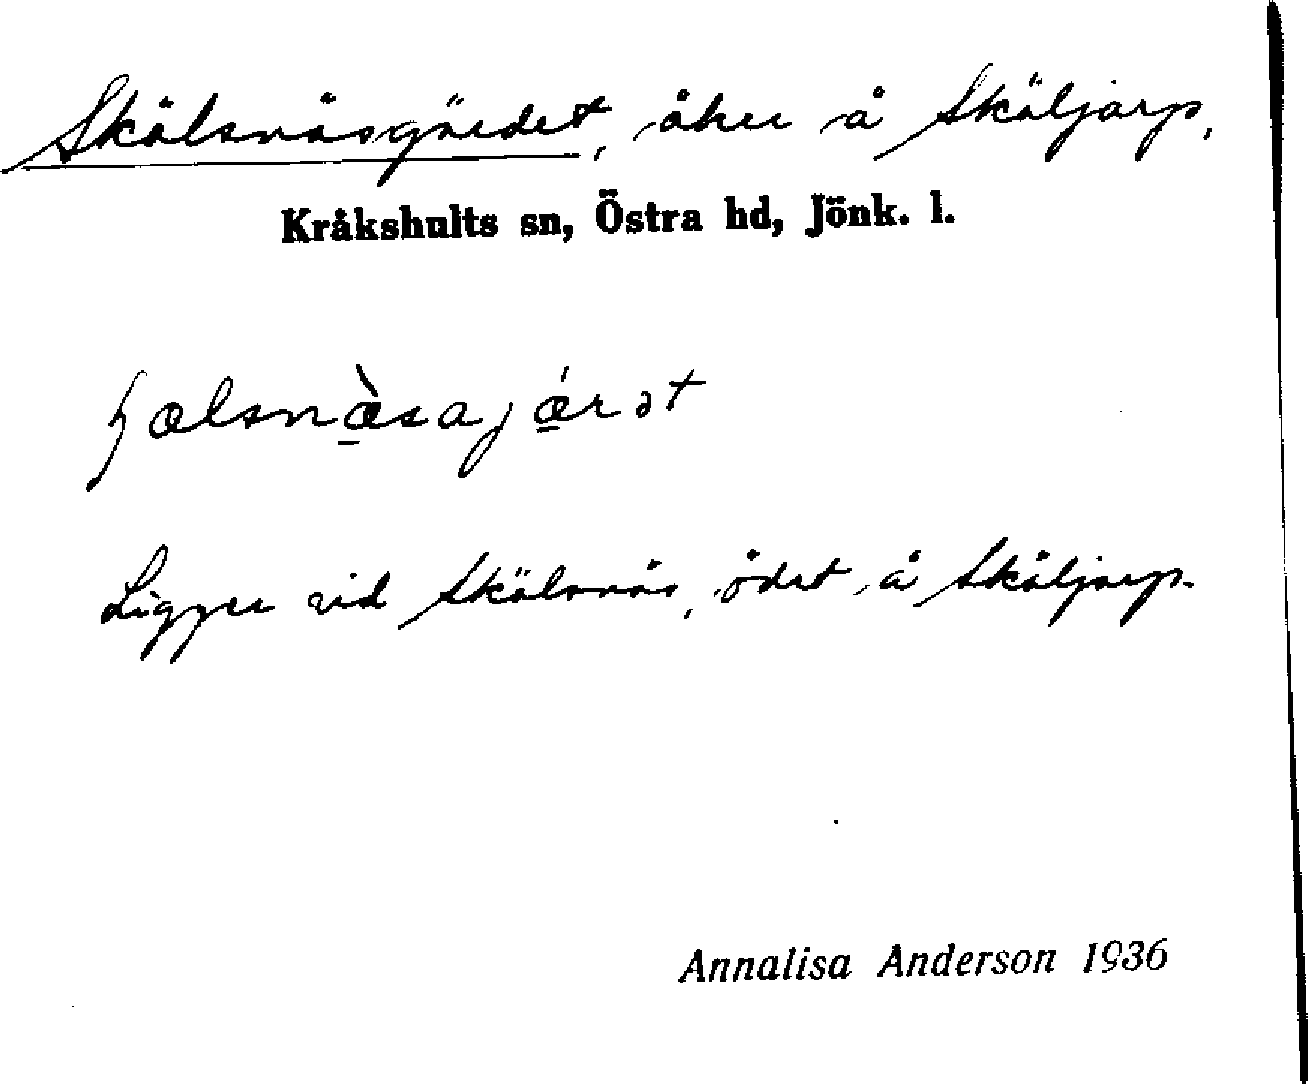 Skälsnäsgärdet, åker å Skäljarp,
Kråkshults sn, Östra hd, Jönk. l.
ɧælsnæ̀sajǽrət
Ligger vid Skälsnäs, ödet å Skäljarp.
Annalisa Anderson 1936